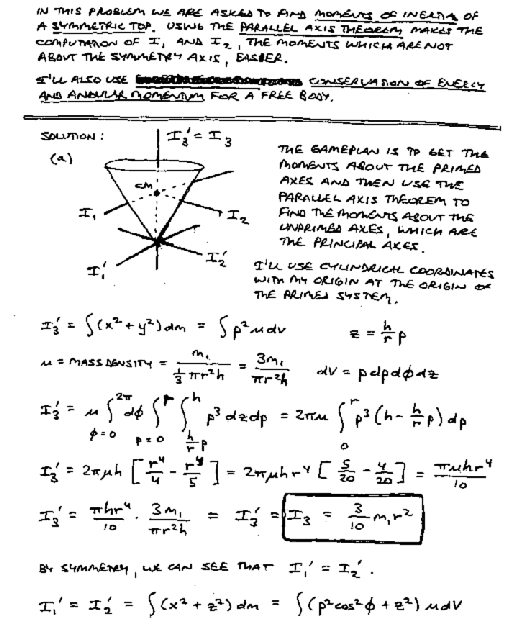 IN THIS PROBLEM WE ARE ASKED TO FIND MOMENTS OF INERTIA OF
A SYMMETRIC TOP. USING THE PARALLEL AXIS THEOREM MAKES THE
COMPUTATION OF I₁ AND I₂, THE MOMENTS WHICH ARE NOT
ABOUT THE SYMMETRY AXIS, EASIER.
I'LL ALSO USE CONSERVATION OF ENERGY
AND ANGULAR MOMENTUM FOR A FREE BODY.
SOLUTION:
(a)
I₃' = I₃
CM
I₁
I₂
I₁'
I₂'
THE GAMEPLAN IS TO GET THE
MOMENTS ABOUT THE PRIMED
AXES AND THEN USE THE
PARALLEL AXIS THEOREM TO
FIND THE MOMENTS ABOUT THE
UNPRIMED AXES, WHICH ARE
THE PRINCIPAL AXES.
I'LL USE CYLINDRICAL COORDINATES
WITH MY ORIGIN AT THE ORIGIN OF
THE PRIMED SYSTEM.
I₃' = ∫(x² + y²) dm = ∫ρ² μ dv z = h/r ρ
μ = MASS DENSITY = m₁ / (1/3 πr²h) = 3m₁ / πr²h dV = ρdρdφdz
I₃' = μ ∫_{φ=0}^{2π} dφ ∫_{ρ=0}^{r} ∫_{h/r ρ}^{h} ρ³ dz dρ = 2πμ ∫_0^r ρ³ (h - h/r ρ) dρ
I₃' = 2πμh [r⁴/4 - r⁴/5] = 2πμhr⁴ [5/20 - 4/20] = πμhr⁴/10
I₃' = πhr⁴/10 · 3m₁/πr²h = I₃' = I₃ = 3/10 m₁r²
BY SYMMETRY, WE CAN SEE THAT I₁' = I₂'.
I₁' = I₂' = ∫(x² + z²) dm = ∫(ρ²cos²φ + z²) μdV